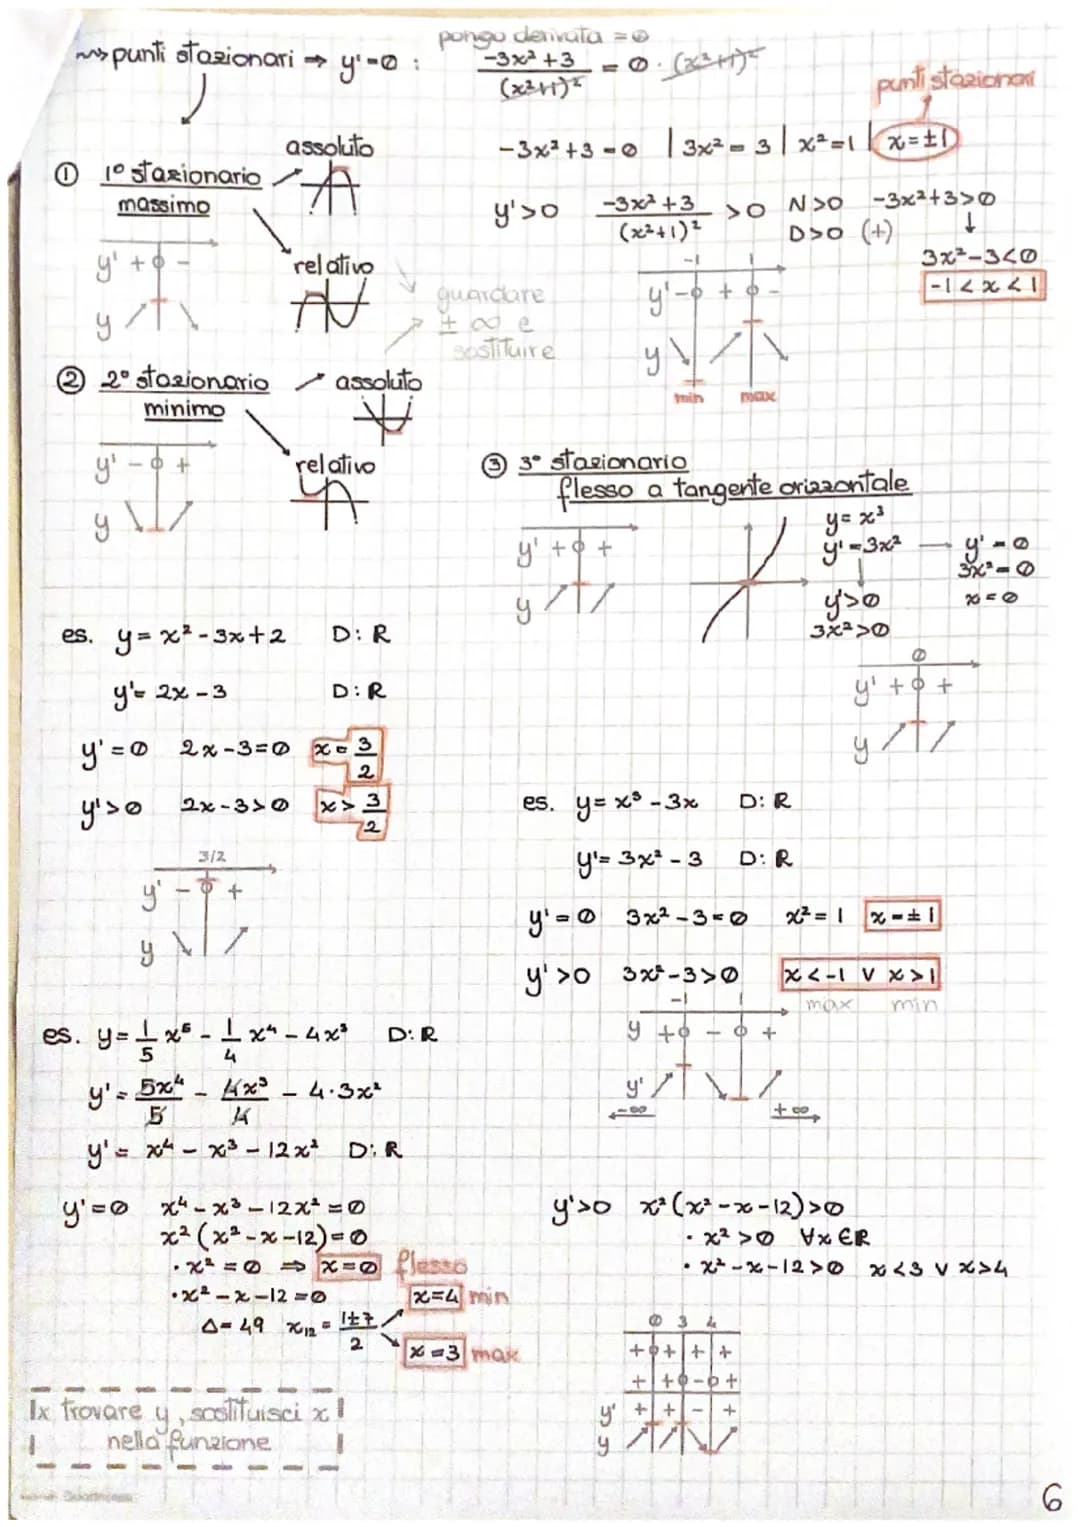 pongo derivata = 0
⇝ punti stazionari ⇒ y'=0 : -3x²+3/(x²+1)² = 0 · (x²+1)²
punti stazionari
-3x²+3=0 | 3x²=3 | x²=1 | x=±1
① 1° stazionario
massimo
assoluto
relativo
y' + 0 -
y ↗ ↘
guardare
± ∞ e
sostituire
y'>0 -3x²+3/(x²+1)² >0 N>0 -3x²+3>0
D>0 (+)
3x²-3<0
-1<x<1
-1 1
y' - 0 + 0 -
y ↘ ↗ ↘
min max
② 2° stazionario
minimo
assoluto
relativo
y' - 0 +
y ↘ ↗
③ 3° stazionario
flesso a tangente orizzontale
y' + 0 +
y ↗ ↗
y=x³
y'=3x² → y'=0
3x²=0
x=0
y'>0
3x²>0
0
y' + 0 +
y ↗ ↗
es. y=x²-3x+2 D:R
y'=2x-3 D:R
y'=0 2x-3=0 x=3/2
y'>0 2x-3>0 x>3/2
3/2
y' - 0 +
y ↘ ↗
es. y=x³-3x D:R
y'=3x²-3 D:R
y'=0 3x²-3=0 x²=1 x=±1
y'>0 3x²-3>0 x<-1 V x>1
max min
-1 1
y + 0 - 0 +
y' ↗ ↘ ↗
-∞ +∞
es. y=1/5 x⁵ - 1/4 x⁴ - 4x³ D:R
y'= 5x⁴/5 - 4x³/4 - 4·3x²
y'= x⁴ - x³ - 12x² D:R
y'=0 x⁴-x³-12x²=0
x²(x²-x-12)=0
· x²=0 ⇒ x=0 flesso
· x²-x-12=0
Δ=49 x₁₂= 1±7/2
x=4 min
x=3 max
y'>0 x²(x²-x-12)>0
· x²>0 ∀x∈R
· x²-x-12>0 x<3 V x>4
0 3 4
+ 0 + + +
+ + 0 - 0 +
y' + + - +
y ↗ ↗ ↘ ↗
x trovare y, sostituisci x
nella funzione
6